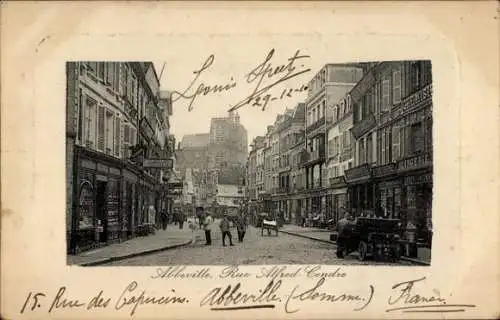 Louis Spet
29-12-10
Abbeville, Rue Alfred Cendre
15. Rue des Capucins. Abbeville (Somme.) France